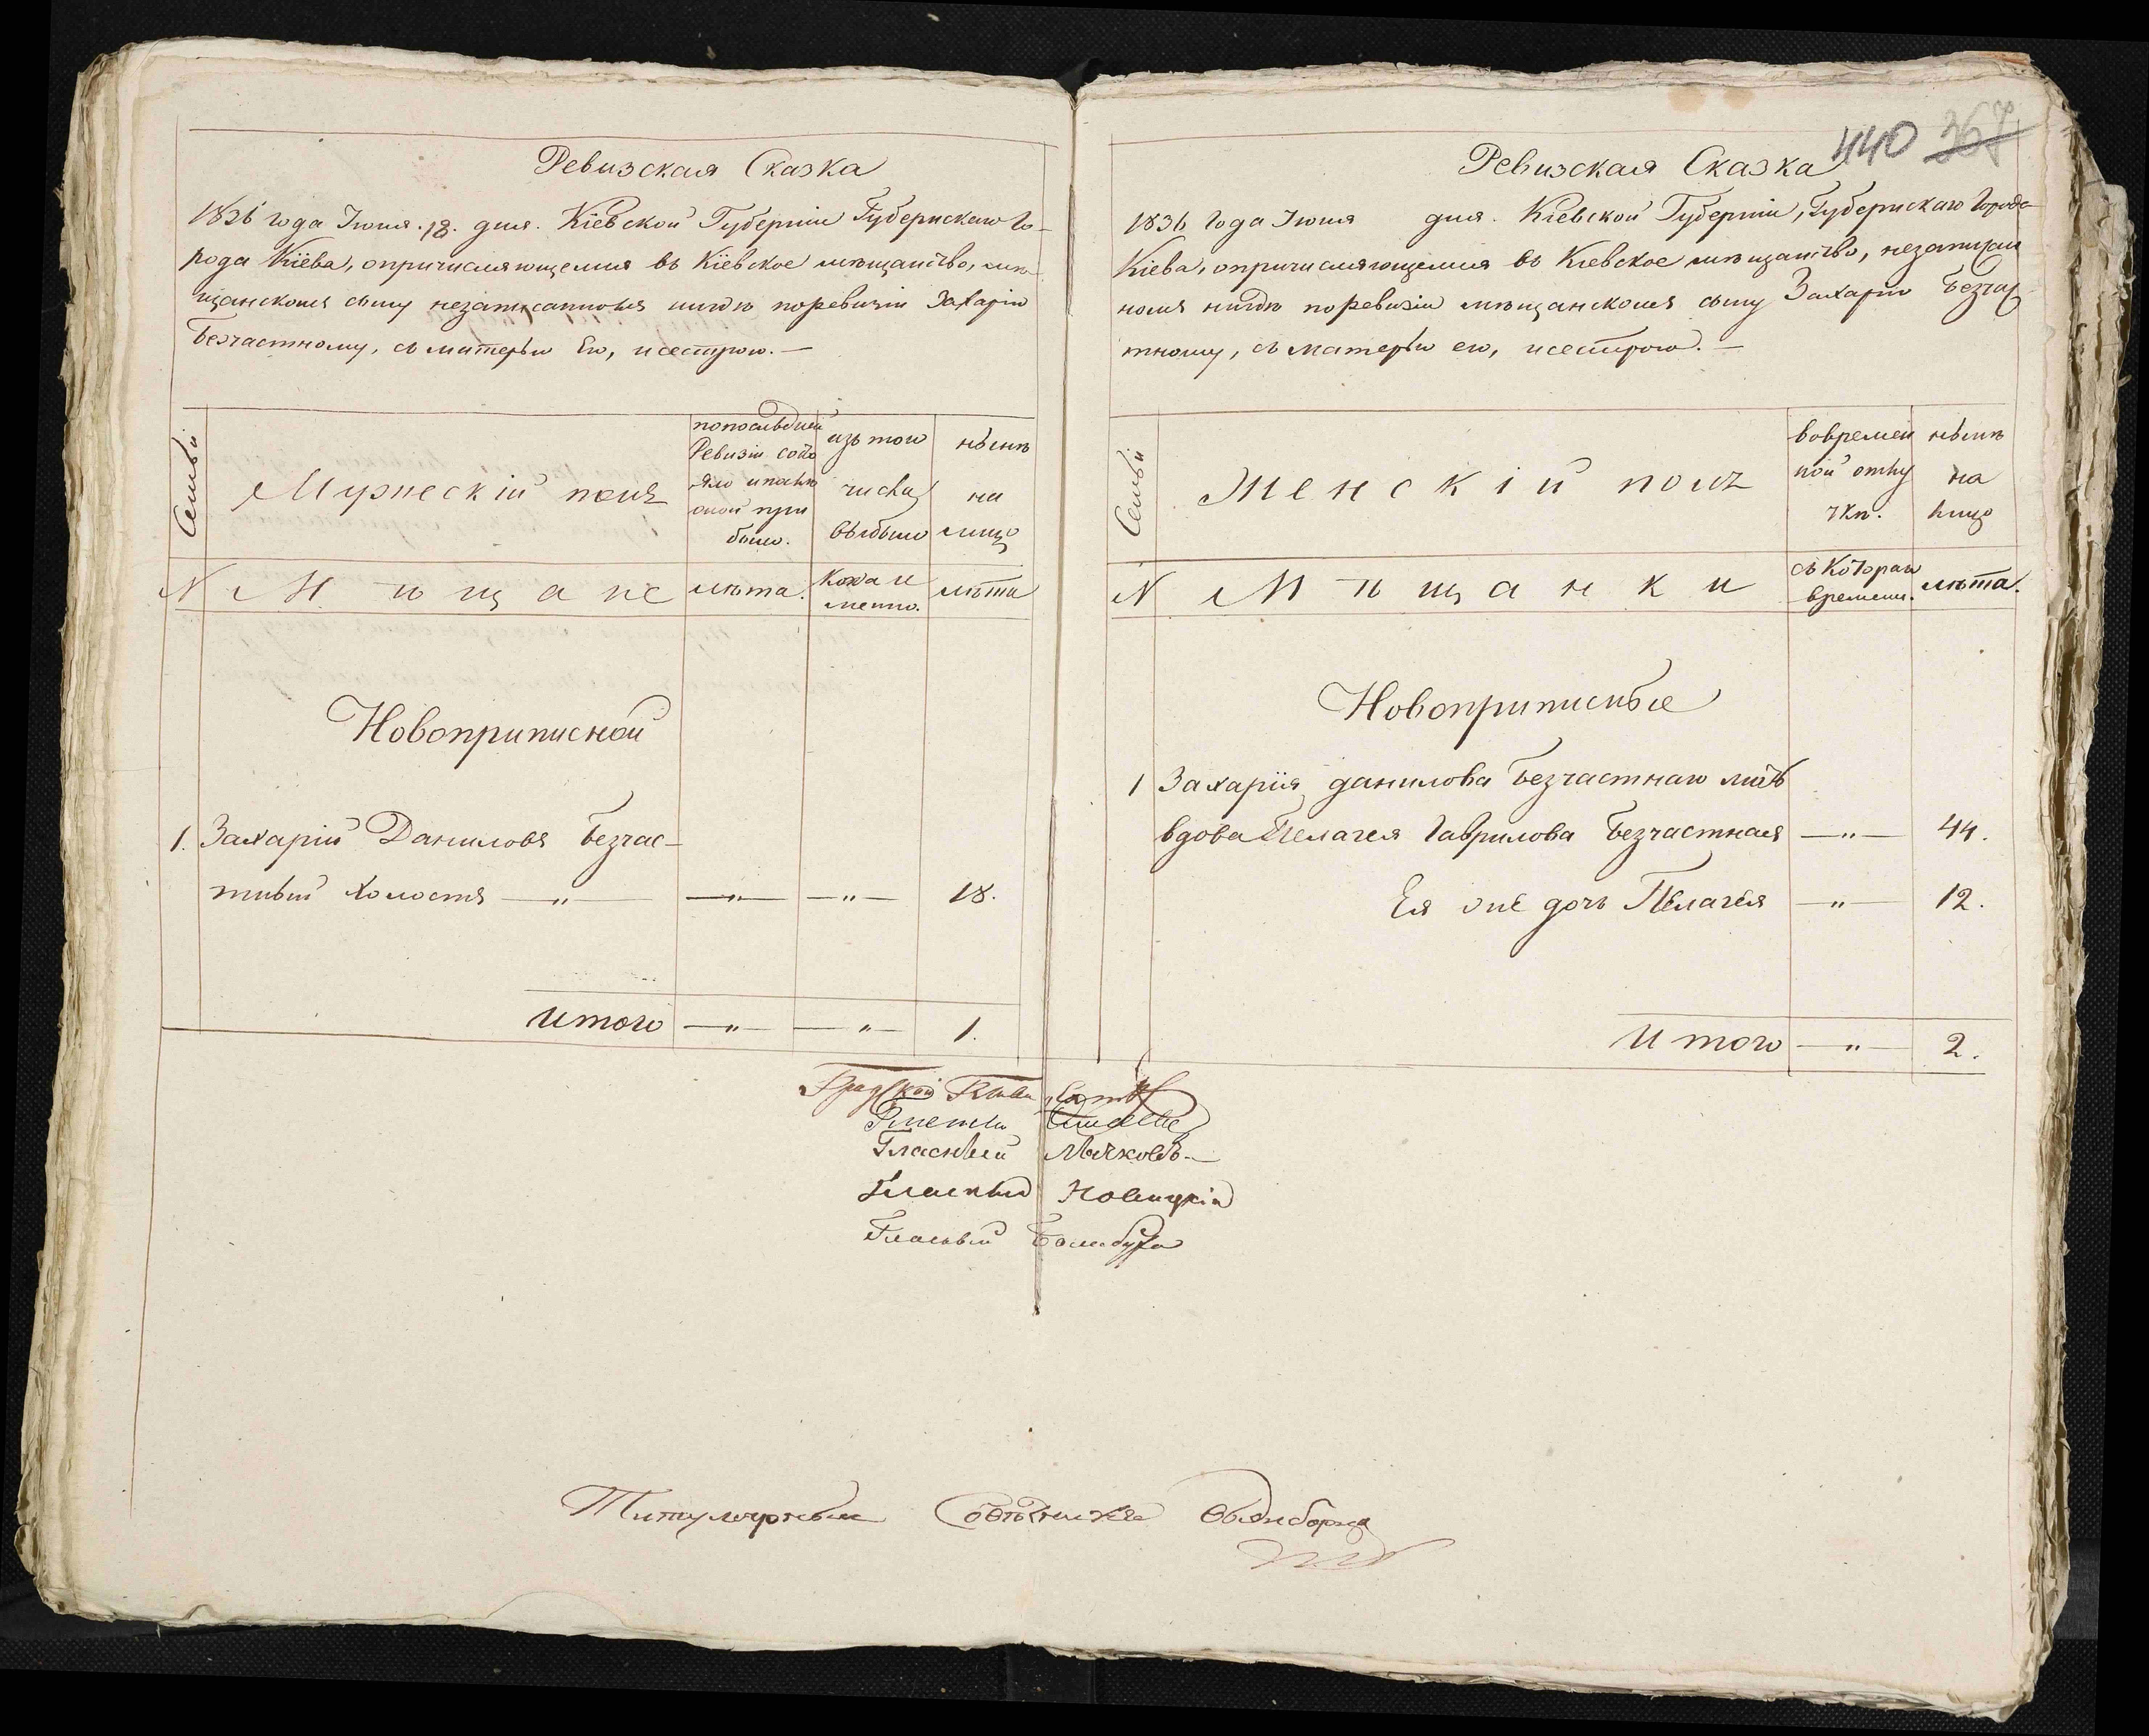 Ревизская Сказка
1836 года Іюня. 18. дня. Кіевской Губерніи Губернскаго Го-
рода Кіева, опричисляющемся въ Кіевское мѣщанство, мѣ-
щанскомъ сыну незаписанномъ нигдѣ поревизіи Захарію
Безчастному, съ матерью Его, исестрою. —
Семьи
Мужескій полъ
попослѣдней
Ревизіи состо
яло ипослѣ
оной при
было.
изъ того
числа
выбыло
нынѣ
на
лицо
N
Мѣщане
лѣта.
Когда и
менно.
лѣта
Новоприписной
1. Захарій Даниловъ Безчас-
тный холостъ — „ — — „ — — „ — 18.
Итого — „ — — „ — 1.
440 367
Ревизская Сказка
1836 года Іюня дня. Кіевской Губерніи, Губернскаго Города
Кіева, опричисляющемся въ Кіевское мѣщанство, незаписан
номъ нигдѣ поревизіи мѣщанскомъ сыну Захарію Безчас
тному, съ матерью его, исестрою. —
Семьи
Женскій полъ
вовремен
ной отлу
чкѣ.
нынѣ
на
лицо
N
Мѣщанки
съ Котораго
времени.
лѣта.
Новоприписные
1 Захарія данилова Безчастнаго мать
вдова Пелагея Гаврилова Безчастная — „ — 44.
Ея дочь Пелагея — „ — 12.
Итого — „ — 2.
Градской Глава
Гласный
Гласный Новицкій
Гласный
Титулярный Совѣтникъ